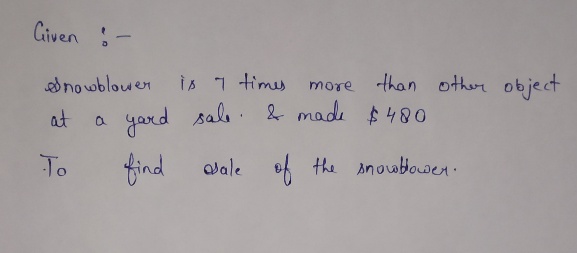 Given :-
snowblower is 7 times more than other object
at a yard sale. & made $480
To find sale of the snowblower.